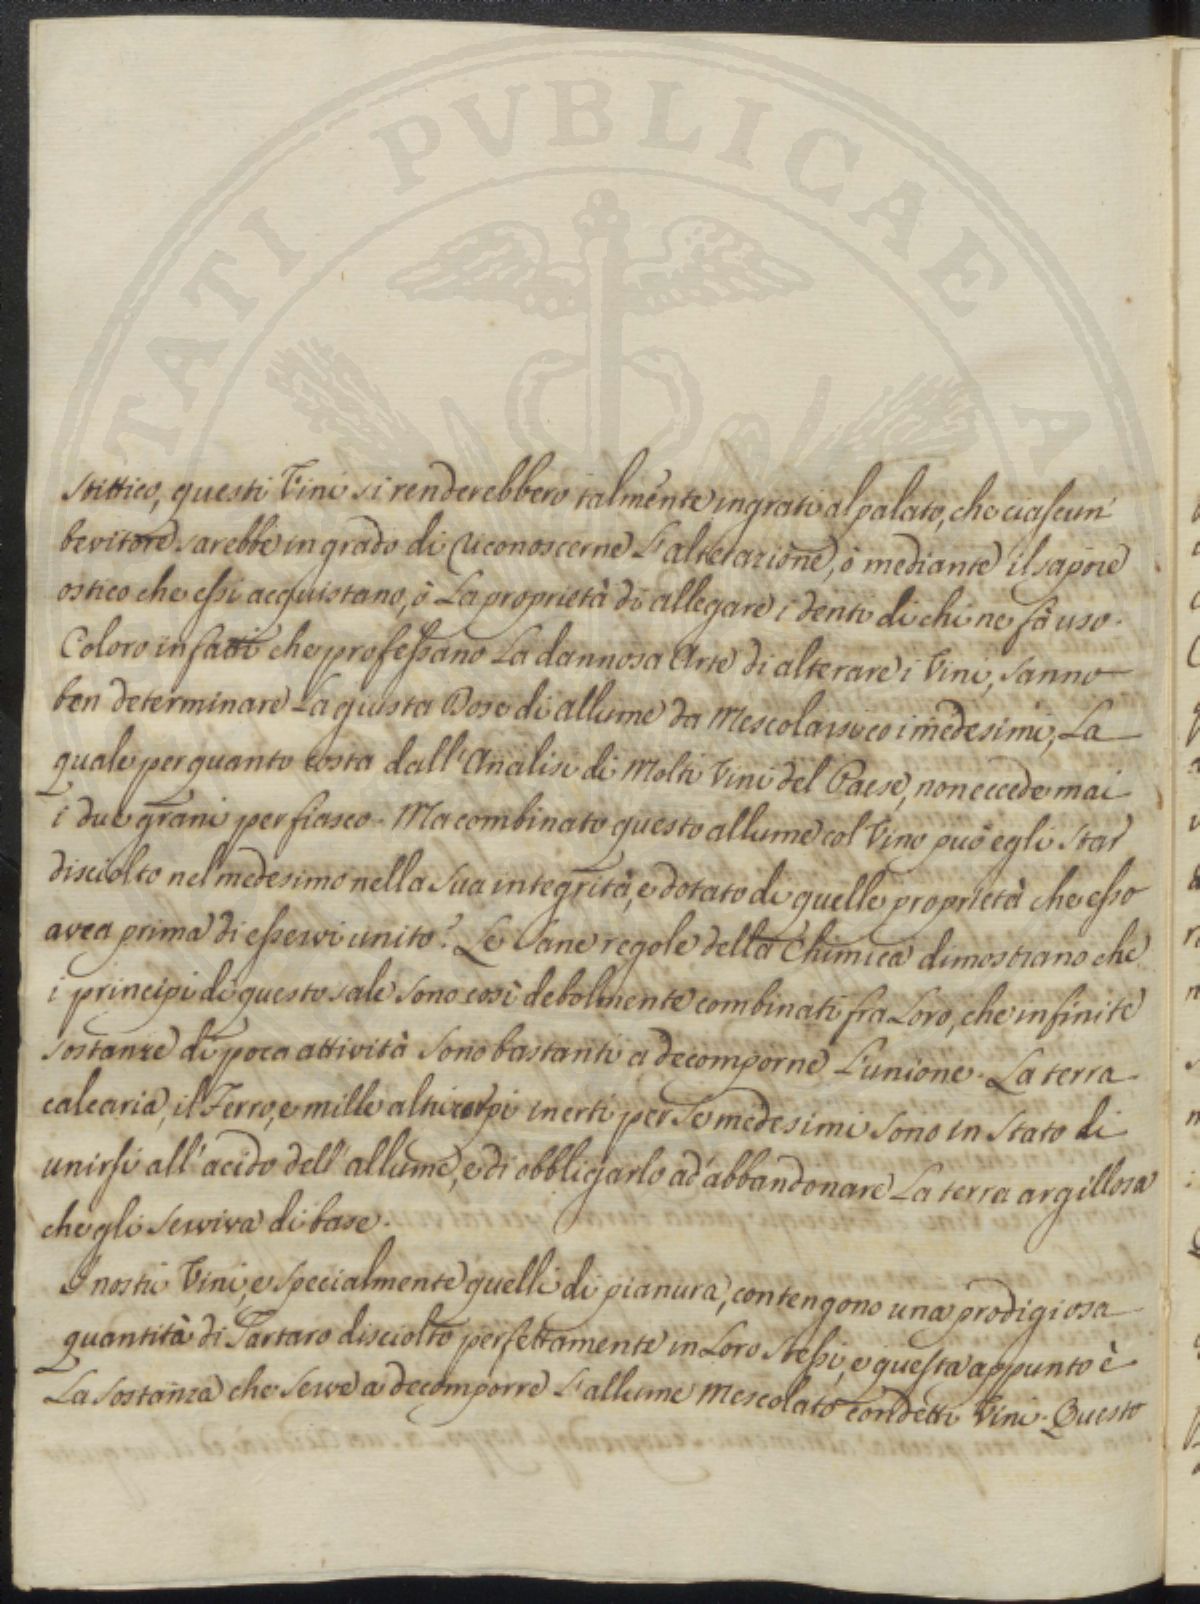 TATI PUBLICAE A
stittico, questi Vini si renderebbero talménte ingrati al palato, che ciascun'
bevitore sarebbe in grado di riconoscerne L'alterazione, ò mediante il sapore
ostico che essi acquistano, ò La proprietà di allegare i denti di chi ne fà uso.
Coloro infatti che professano La dannosa Arte di alterare i Vini, sanno
ben determinare La giusta Dose di allume da Mescolarsi co i medesimi, La
quale per quanto costa dall'Analisi di Molti Vini del Paese, non eccede mai
i due grani per fiasco. Ma combinato questo allume col Vino può egli Star
disciolto nel medesimo nella Sua integrità, e dotato di quelle proprietà che esso
avea prima di esservi unito? Le Sane regole della Chimica dimostrano che
i principi di questo sale Sono così debolmente combinati fra Loro, che infinite
sostanze di poca attività Sono bastanti a decomporne L'unione. La terra
calcaria, il Ferro, e mille altri corpi inerti per Se medesimi Sono in Stato di
unirsi all'acido dell'allume, e di obbligarlo ad'abbandonare La terra argillosa
che gli Serviva di base.
I nostri Vini, e Specialmente quelli di pianura, contengono una prodigiosa
quantità di Tartaro disciolto perfettamente in Loro Stessi, e questa appunto è
La Sostanza che Serve a decomporre L'allume Mescolato con detti Vini. Questo